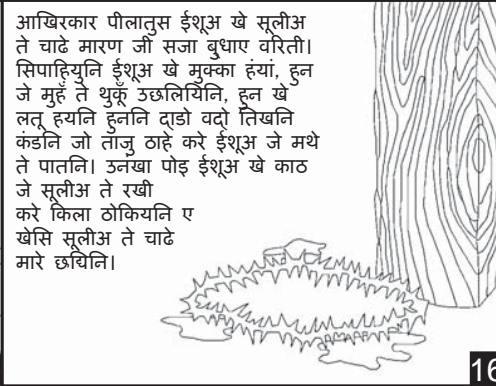 आखिरकार पीलातुस ईशूअ खे सूलीअ
ते चाढे मारण जी सजा ॿुधाए वरिती।
सिपाहियुनि ईशूअ खे मुक्का हंयां, हुन
जे मुहँ ते थुकूँ उछलियिनि, हुन खे
लतू हयनि हुननि दा॒डो वदो॒ तिखनि
कंडनि जो ताजु ठाहे करे ईशूअ जे मथे
ते पातनि। उनंखा पोइ ईशूअ खे काठ
जे सूलीअ ते रखी
करे किला ठोकियनि ए
खेसि सूलीअ ते चाढे
मारे छयिनि।
16